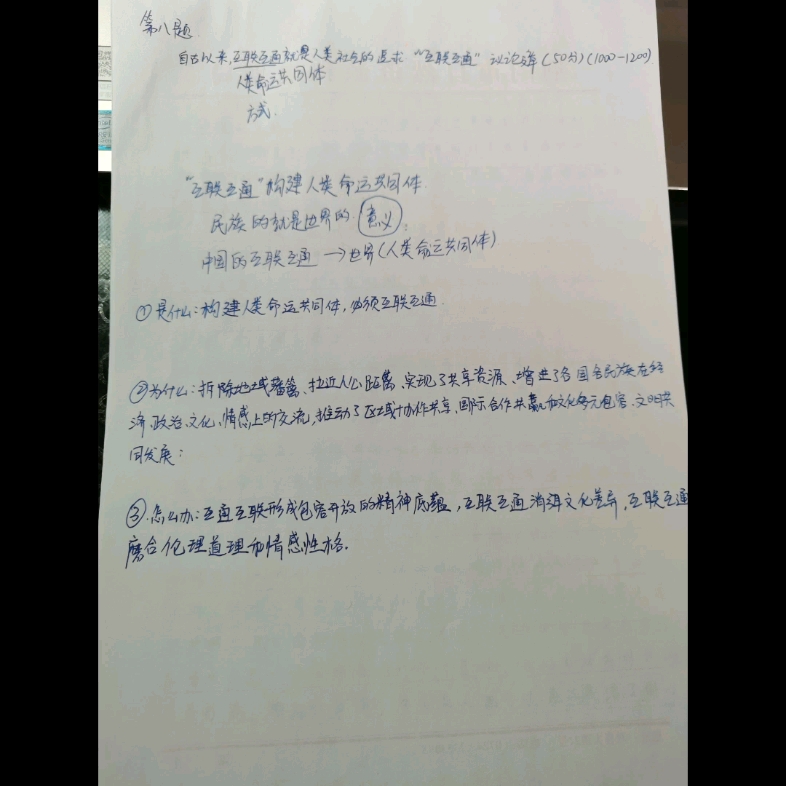 第八题
自古以来,互联互通就是人类社会的追求 "互联互通" 议论文(50分)(1000-1200)
人类命运共同体
方式.
"互联互通"构建人类命运共同体.
民族的就是世界的.意义.
中国的互联互通→世界(人类命运共同体)
①是什么:构建人类命运共同体,必须互联互通.
②为什么:拆除地域藩篱、拉近人心距离、实现了共享资源、增进了各国各民族在经
济、政治、文化、情感上的交流,推动了区域协作共享、国际合作共赢和文化多元包容、文明共
同发展;
③.怎么办:互通互联形成包容开放的精神底蕴,互联互通消弭文化差异,互联互通
磨合伦理道理和情感性格.